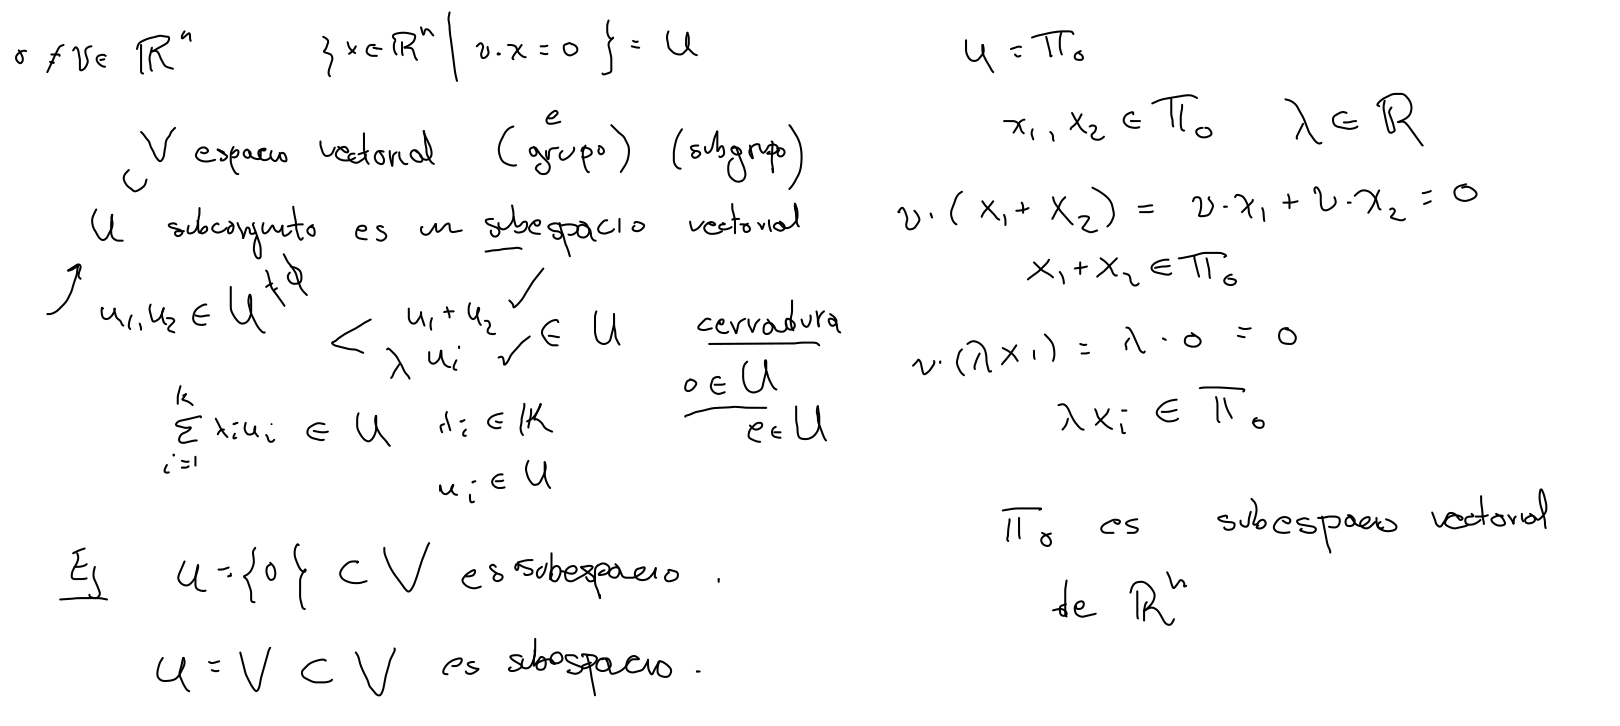 0 ≠ v ∈ ℝⁿ      { x ∈ ℝⁿ | v·x = 0 } = U
V espacio vectorial (grupo) (subgrupo)
e
⊂
U subconjunto es un subespacio vectorial
u₁, u₂ ∈ U ≠ ϕ
< u₁ + u₂ ✓
λ uᵢ ✓ ∈ U
cerradura
0 ∈ U
e ∈ U
∑ᵢ₌₁ᵏ λᵢuᵢ ∈ U   λᵢ ∈ 𝕂
uᵢ ∈ U
Ej   U = {0} ⊂ V es subespacio .
U = V ⊂ V es subespacio .
U = Π₀
x₁, x₂ ∈ Π₀   λ ∈ ℝ
v·(x₁ + x₂) = v·x₁ + v·x₂ = 0
x₁ + x₂ ∈ Π₀
v·(λx₁) = λ·0 = 0
λxᵢ ∈ Π₀
Π₀ es subespacio vectorial
de ℝⁿ